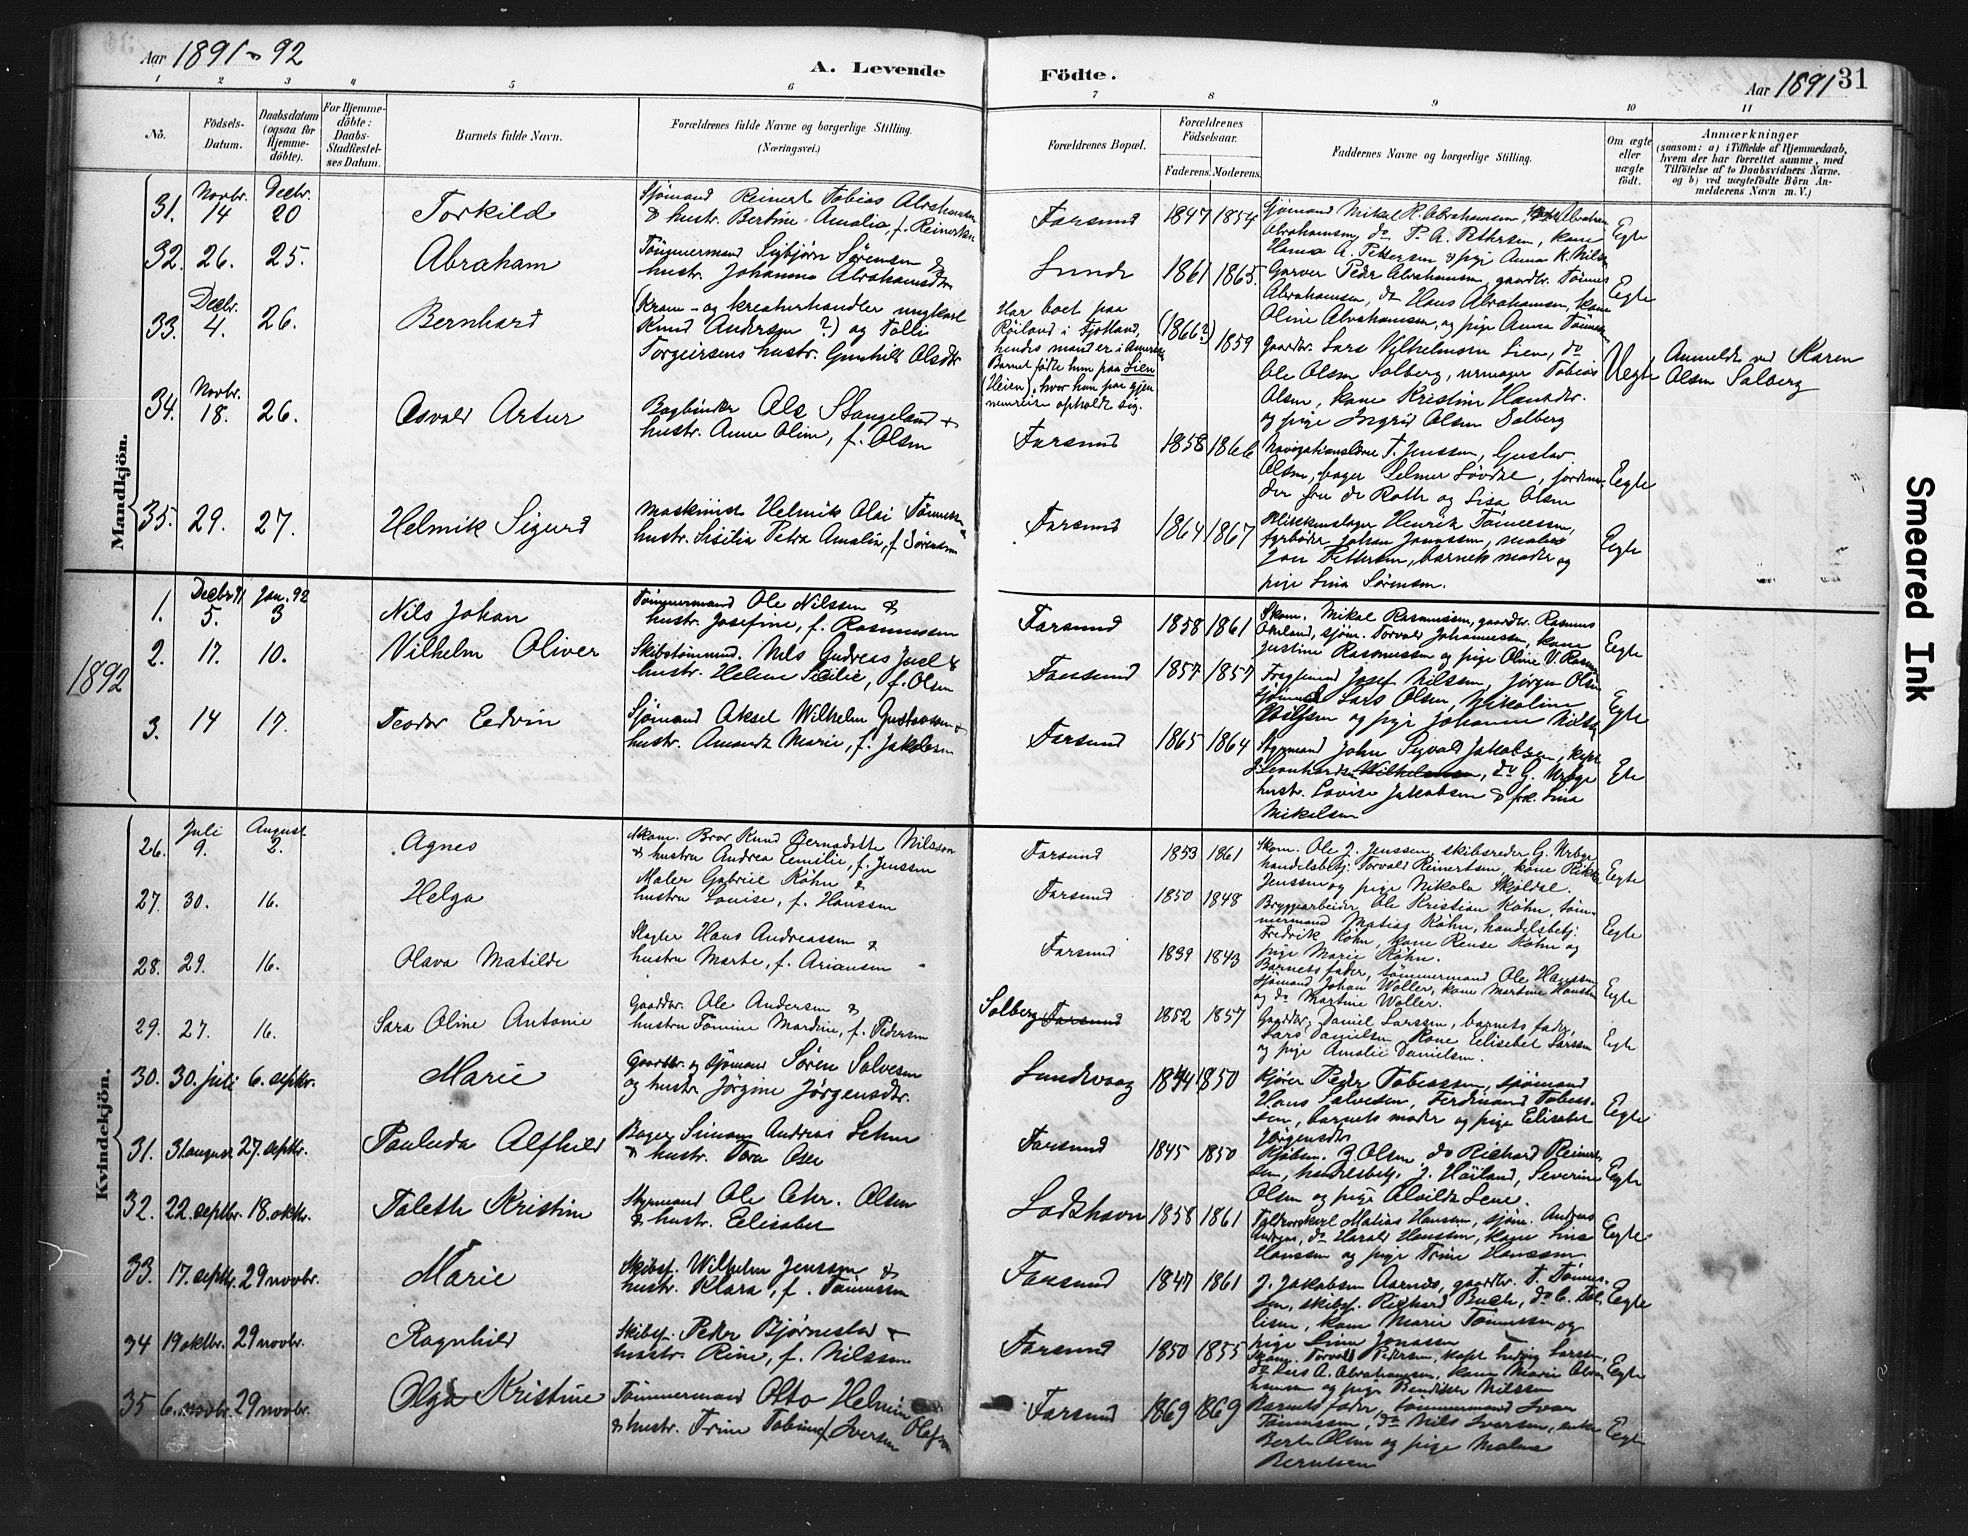 Aar 1891-92
A. Levende Födte.
Aar 1891 31
1 2 3 4 5 6 7 8 9 10 11
No.
Födsels-Datum.
Daabsdatum (ogsaa for Hjemmedöbte).
For Hjemmedöbte: Daabs-Stadfæstelses Datum.
Barnets fulde Navn.
Forældrenes fulde Navne og borgerlige Stilling.
(Næringsvei.)
Forældrenes Bopæl.
Forældrenes Födselsaar.
Faderens. Moderens.
Faddernes Navne og borgerlige Stilling.
Om ægte eller uægte födt.
Anmærkninger
(saasom: a) i Tilfælde af Hjemmedaab, hvem der har forrettet samme, med Tilföielse af to Daabsvidners Navne. og b) ved uægtefödte Börn Anmelderens Navn m. V.)
Mandkjön.
31. Novbr. 14 Decbr. 20 Torkild
Sjömand Reinert Tobias Abrahamsen
& hustr. Bertine Amalia, f. Reinertsen
Farsund 1847 1854
Sjömand Mikal R. Abrahamsen,
Abrahamsen, do P. A. Pettersen, kone
Hanna A. Pettersen & pige Anna K. Nilsen
Egte
32. 26. 25. Abraham
Tömmermand Sigbjörn Sörensen &
hustr. Johanna Abrahamsdtr.
Lunde 1861 1865.
Garver Peder Abrahamsen, gaardbr. Tönnes
Abrahamsen, do Hans Abrahamsen, kone
Oline Abrahamsen, og pige Anna Tönnesen
Egte
33. Decbr. 4. 26. Bernhard
(Kram- og kreaturhandler ungkarl
Knud Andersen ?) og Tolli
Torgeirsens hustr. Gunhild Olsdtr.
Har boet paa
Röiland i Fjotland,
hendes mand er i Amerika
Barnet fødte hun paa Lien
(Heien), hvor hun paa gjen
nemreise opholdt sig.
(1866?) 1859
gaardbr. Lars Vilhelmsen Lien, do
Ole Olsen Solberg, urmager Tobias
Olsen, kone Kristine Hansdtr.
og pige Ingrid Olsen Solberg
Uegte
Anmeldt ved Karen
Olsen Solberg
34. Novbr. 18. 26. Osvald Artur
Bogbinder Ole Stangeland &
hustr. Anne Oline, f. Olsen
Farsund 1858 1866
Navigationslærer T. Jenssen, Gustav
Olsen, bager Selmer Lövdal, jordmo-
der fru de Roth og Lisa Olsen
Egte
35. 29. 27. Helmik Sigurd
Maskinist Helmik Olai Tönnessen
hustr. Sisilia Petra Amalia, f. Sörensen
Farsund 1864 1867
Blikkenslager Henrik Tönnessen,
fyrböder Johan Jonassen, maler
Jon Pettersen, barnets moder og
pige Lina Sörensen.
Egte
1892
1. Decbr. 91 5. Jan. 92 3 Nils Johan
Tömmermand Ole Nilssen &
hustr. Josefine, f. Rasmussen
Farsund 1858 1861
Skom. Mikal Rasmussen, gaardbr. Rasmus
sjöm. Torvald Johannessen, kone
Justine Rasmussen og pige Oline V. Rasm.
Egte
2. 17. 10. Vilhelm Oliver
Skibstömmd. Nils Andreas Juel &
hustr. Helene Sicilie, f. Olsen
Farsund 1857 1857
Fragtemand Josef Nilssen, Jörgen Olsen
sjömand Lars Olsen, Nikoline
og pige Johanne
Egte
3. 14 17. Teodor Edvin
Sjömand Aksel Wilhelm Gustavsen &
hustr. Amanda Marie, f. Jakobsen
Farsund 1865 1864
Styrmand John Sigvald Jakobsen, kapt.
Leonhardsen Wilhelmsen, do G. Urbye
hustr. Lovise Jakobsen & frk. Lina
Mikelsen
Egte
Kvindekjön.
26. Juli 9. August 2. Agnes
Skom. Bror Knud Bernadotte Nilsson
& hustru Andrea Emilie, f. Jenssen
Farsund 1853 1861
Skom. Ole J. Jenssen, skibsreder G. Urbye
handelsbetj. Torvald Reinertsen, kone Rikke
Jenssen og pige Nikola Sköldel.
Egte
27. 30. 16. Helga
Maler Gabriel Köhn &
hustru Louise, f. Hanssen
Farsund 1850 1848
Bryggearbeider Ole Kristian Köhn, töm-
mermand Matias Köhn, handelsbetj.
Fredrik Köhn, kone Rense Köhn og
pige Marie Köhn.
Egte
28. 29. 16. Olava Matilde
Slagter Hans Andreassen &
hustru Marte, f. Ariansen
Farsund 1839 1843
Barnets fader, tömmermand Ole Hanssen
sjömand Johan Woller, kone Martine Hanssen
og do Martine Woller.
Egte
29. 27. 16. Sara Oline Antonie
Gaardbr. Ole Andersen &
hustru Tomine Mardine, f. Pedersen
Solberg Farsund 1852 1857
Gaardbr. Daniel Larssen, barnets fader,
Lars Danielsen, kone Elisabet Larssen
og pige Amalie Danielsen.
Egte
30. 30. juli 6. septbr. Marie
Gaardbr. og Sjömand Sören Salvesen
og hustr. Jörgine Jörgensdtr.
Lundevaag 1844 1850
Kjörer Peder Tobiassen, sjömand
Hans Salvesen, Ferdinand Tobias-
sen, barnets moder og pige Elisabet
Jörgensdtr.
Egte
31. 31 august 27. septbr. Pauleda Alfhild
Bager Simon Andreas Lehne
& hustr. Tora Oser
Farsund 1845 1850
Kjöbm. J. Olsen, do Richard Reinert-
sen, handelsbetj. J. Höiland, Severine
Olsen og pige Alvilde Lene.
Egte
32. 22. septbr. 18. oktbr. Taleth Kristine
Styrmand Ole Chr. Olsen
& hustr. Elisabet
Loshavn 1858 1861
Toldroerskarl Matias Hanssen, sjöm. Andreas
do Harald Hanssen, kone Lina
Hanssen og pige Trine Hanssen
Egte
33. 17. septbr. 29 novbr. Marie
Skibsf. Wilhelm Jenssen &
hustr. Klara, f. Tönnessen
Farsund 1847 1861
J. Jakobsen Aarnes, gaardbr. T. Tönnes-
sen, skibsf. Richard Buch, do C. Tol-
lisen, kone Marie Tönnessen og
pige Lina Jonassen
Egte
34 19 oktbr. 29 novbr. Ragnhild
Skibsf. Peder Bjørnestad &
hustr. Rine, f. Nilssen
Farsund 1850 1855
Skom. Torvald Pedersen, kapt. Ludvig Larssen,
do Lars A. Abrahamsen, kone Marie Abra-
hamsen og pige Bendikte Nilssen
Egte
35 6. novbr. 29 novbr. Olga Kristine
Tömmermand Otto Helmin Olafsen
& hustr. Trine Tobine, f. Iversen
Farsund 1869 1869
Barnets fader, tömmermand Ivar
Tönnessen, do Nils Iversen, enke
Berte Olsen og pige Malene
Berntsen
Egte
Smeared Ink